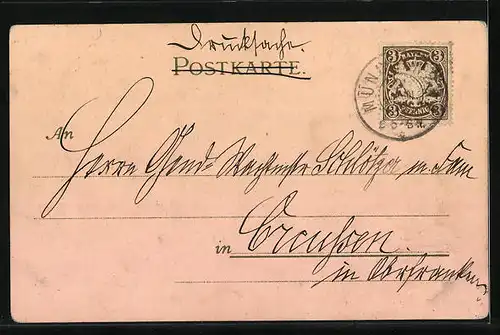 Drucksache.
POSTKARTE.
MÜN
3 3
BAYERN
3 PFENNIG 3
An
Herrn Gend. Wachtmstr Schlötzer m. Fam
in Creussen.
in Oberfranken